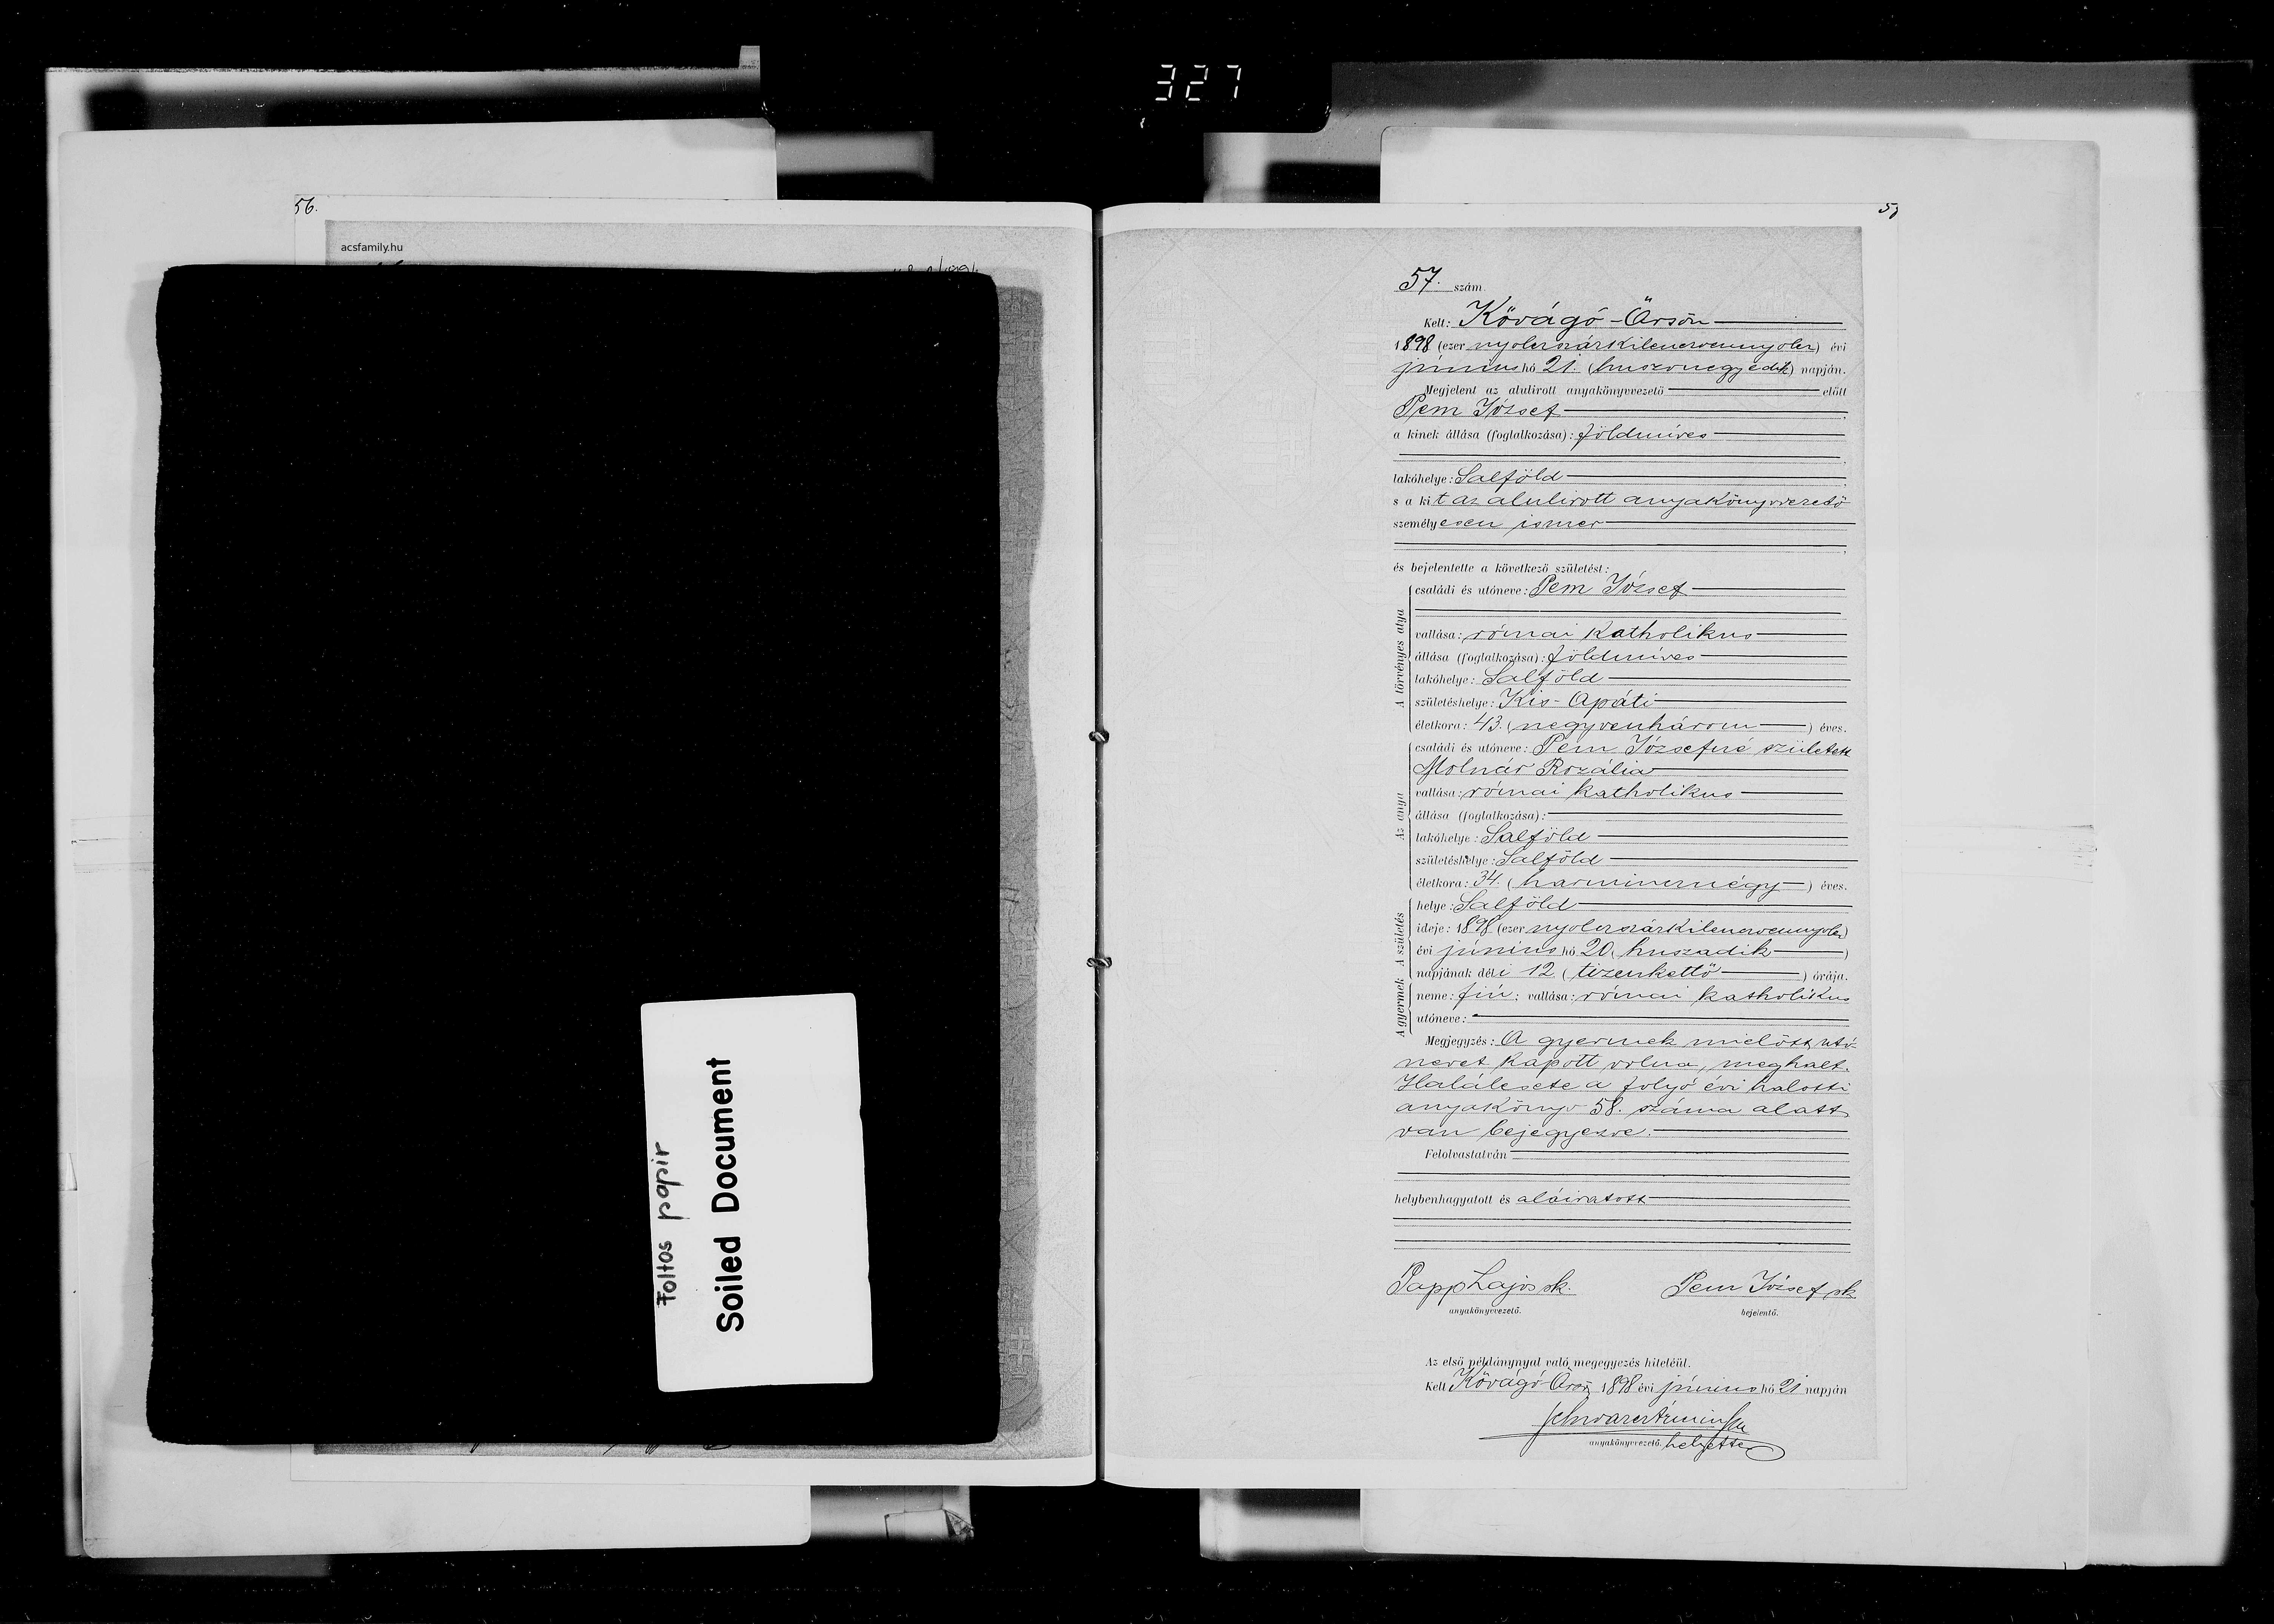 327
56.
acsfamily.hu
Foltos papir
Soiled Document
57. szám.
Kelt: Kővágó-Örsön
1898 (ezer nyolczszázkilenczvennyolcz) évi
június hó 21. (huszonegyedik) napján.
Megjelent az alulirott anyakönyvvezető előtt
Pem József
a kinek állása (foglalkozása): földmíves
lakóhelye: Salföld
s a kit az alulirott anyakönyvvezető
személyesen ismer
és bejelentette a következő születést:
A törvényes atya
családi és utóneve: Pem József
vallása: római katholikus
állása (foglalkozása): földmíves
lakóhelye: Salföld
születéshelye: Kis-Apáti
életkora: 43. (negyvenhárom) éves.
Az anya
családi és utóneve: Pem Józsefné született
Molnár Rozália
vallása: római katholikus
állása (foglalkozása):
lakóhelye: Salföld
születéshelye: Salföld
életkora: 34. (harmincznégy) éves.
A születés
helye: Salföld
ideje: 1898 (ezer nyolczszázkilenczvennyolcz)
évi június hó 20. (huszadik)
napjának déli 12 (tizenkettő) órája.
A gyermek
neme: fiú; vallása: római katholikus
utóneve:
Megjegyzés: A gyermek mielőtt utó-
nevet kapott volna, meghalt.
Halálesete a folyó évi halotti
anyakönyv 58. száma alatt
van bejegyezve.
Felolvastatván
helybenhagyatott és aláiratott
Papp Lajos sk. Pem József sk.
anyakönyvvezető. bejelentő.
Az első példánynyal való megegyezés hiteléül.
Kelt Kővágó-Örsön, 1898 évi június hó 21 napján
anyakönyvvezető helyettes